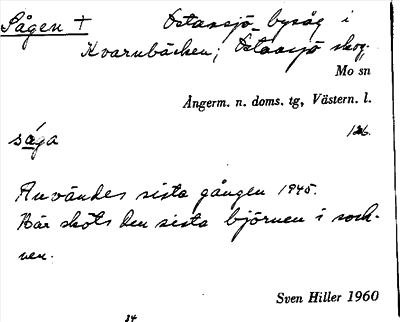 Sågen + Östansjö bysåg i
Kvarnbäcken; Östansjö skog.
Mo sn
Ångerm. n. doms. tg, Västern. l.
såga 126.
Användes sista gången 1945.
Här sköts den sista björnen i sock-
nen.
Sven Hiller 1960
24